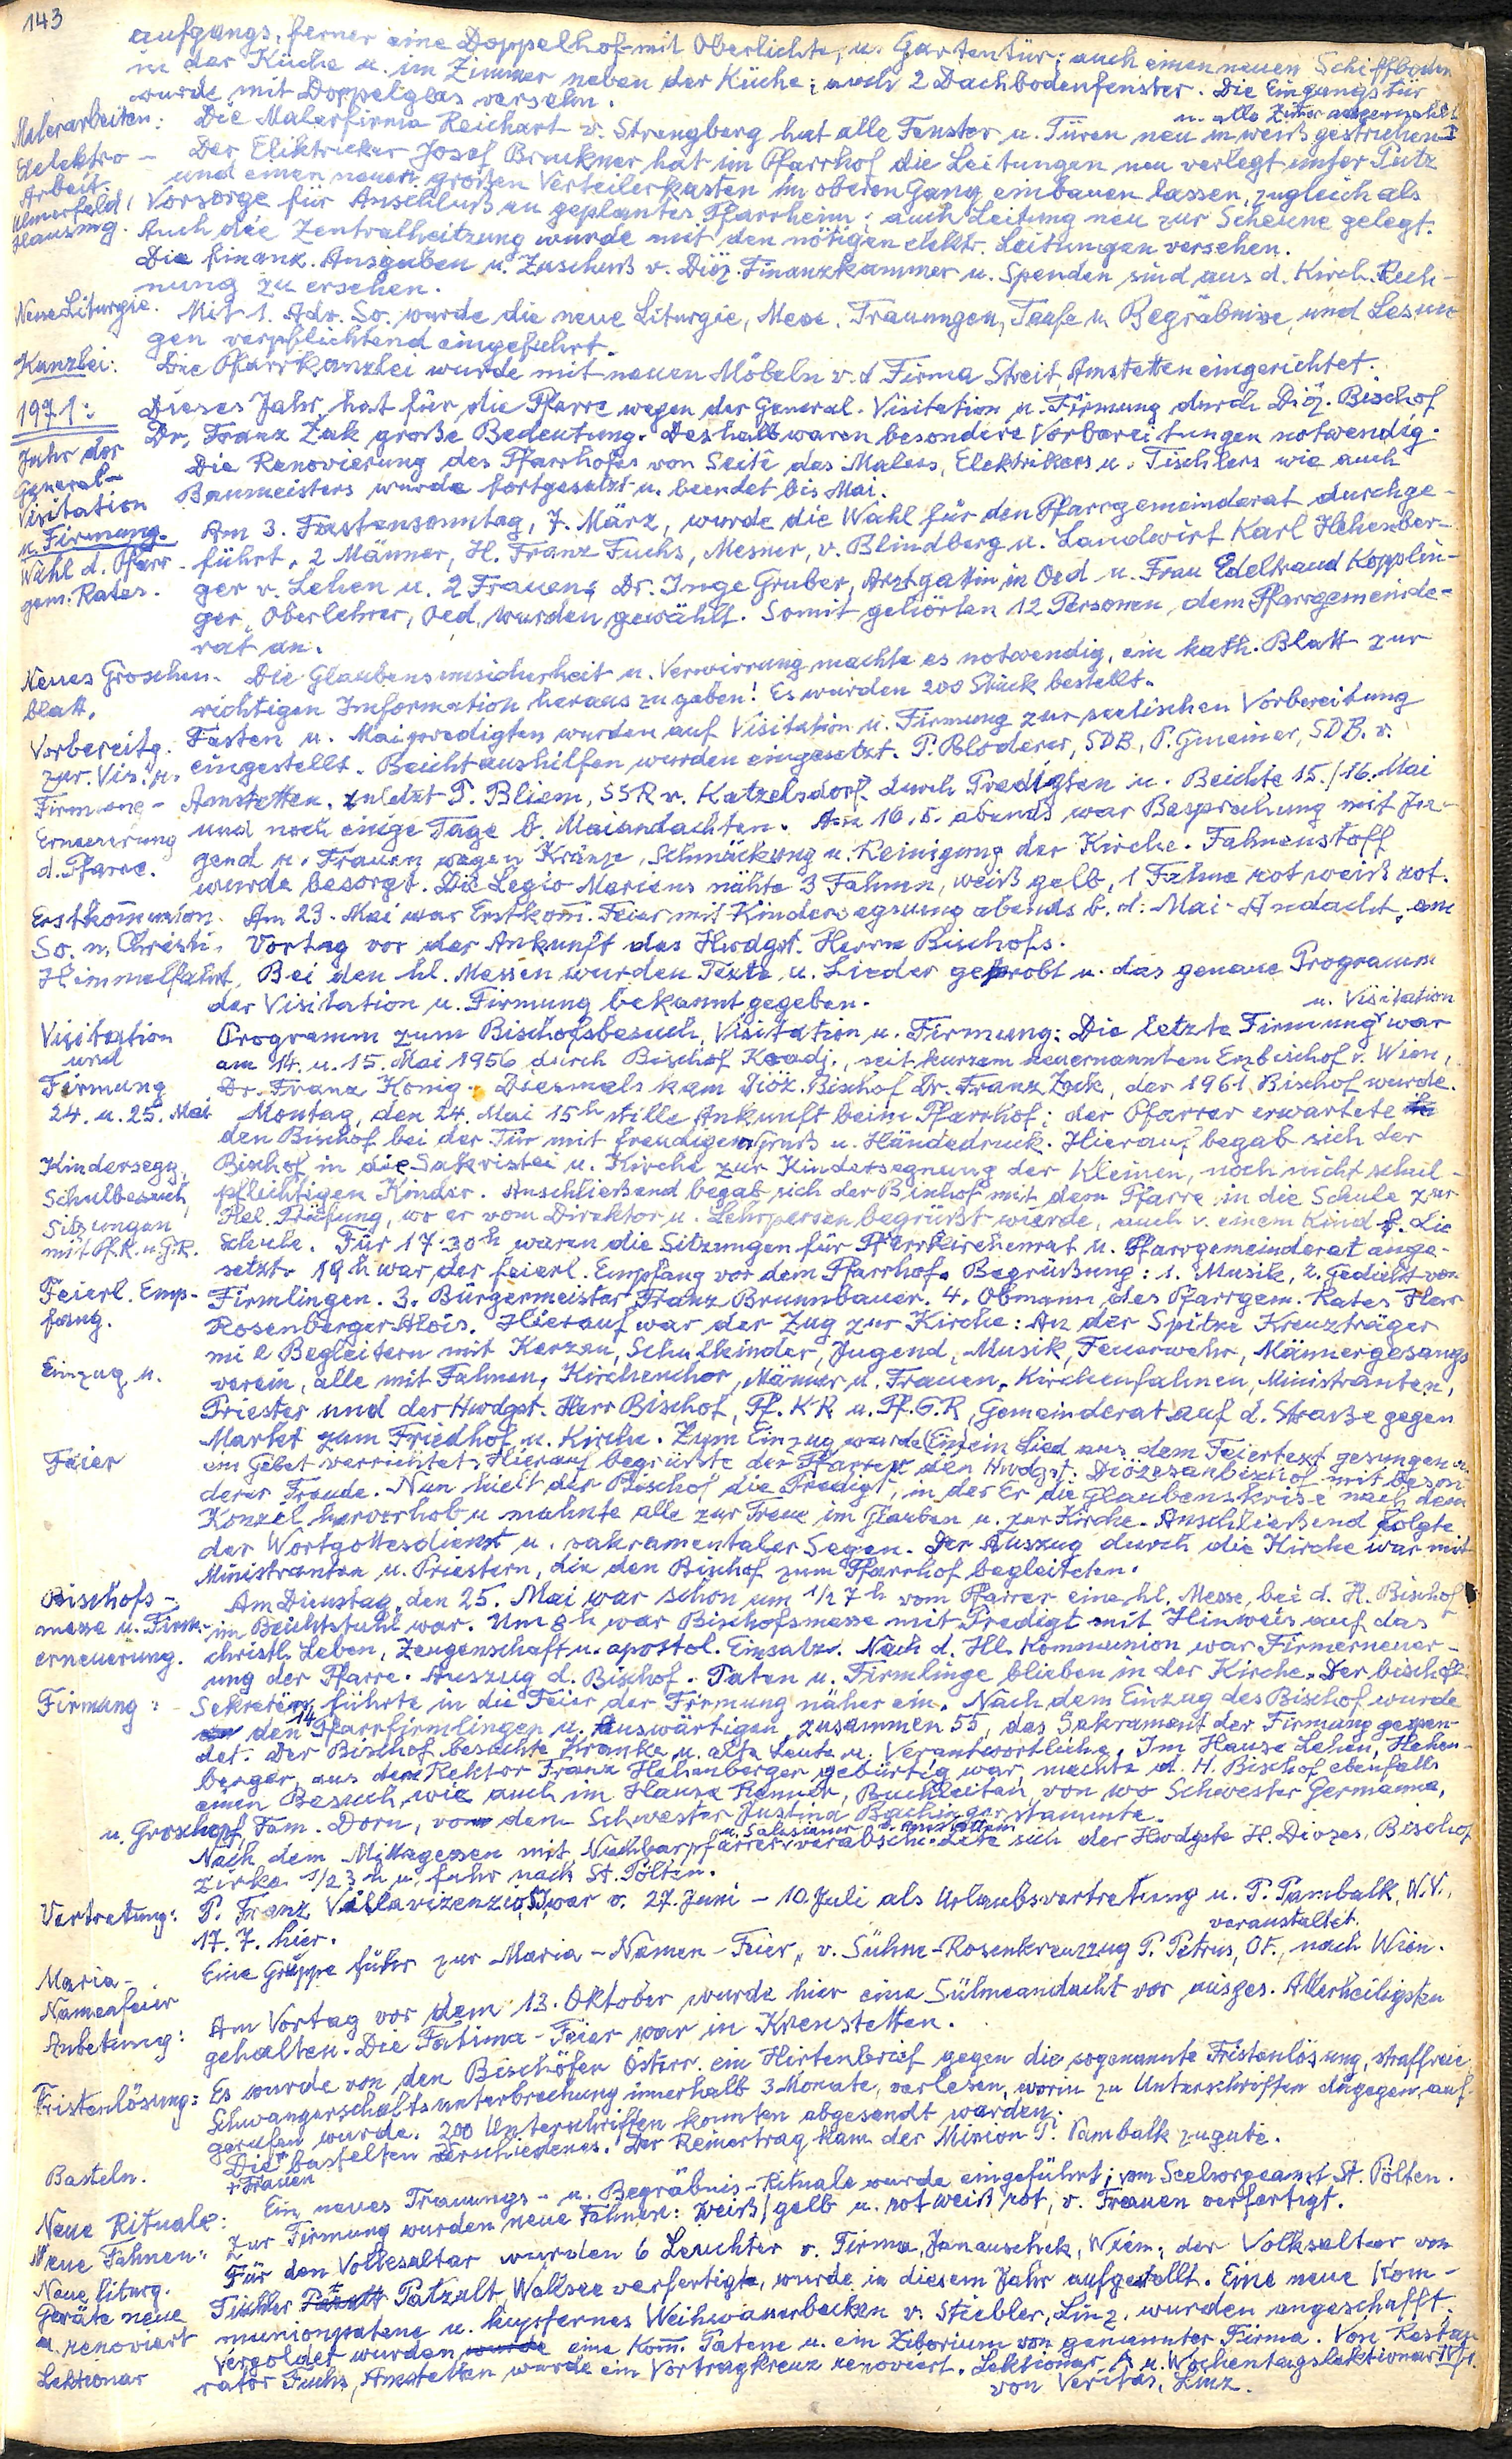 143
aufgangs, ferner eine Doppelhof mit Oberlichte, u. Gartentür; auch einen neuen Schiffboden
in der Küche u. im Zimmer neben der Küche; auch 2 Dachbodenfenster. Die Eingangstür
wurde mit Doppelglas versehn.
u. alle Zimer ausgemahlt
Malerarbeiten: Die Malerfirma Reichart v. Strengberg hat alle Fenster u. Türen neu in weiß gestrichen
Elelektro- Der Eliktricker Josef Bruckner hat im Pfarrhof die Leitungen neu verlegt unter Putz
Arbeit. und einen neuen großen Verteilerkasten im oberen Gang einbauen lassen, zugleich als
Ulmerfeld Vorsorge für Anschluß an geplantes Pfarrheim; auch Leitung neu zur Scheune gelegt.
Hausmg. Auch die Zentralheitzung wurde mit den nötigen elektr. Leitungen versehen.
Die finanz. Ausgaben u. Zuschuß v. Diöz. Finanzkammer u. Spenden sind aus d. Kirch. Rech-
nung zu ersehen.
Neue Liturgie. Mit 1. Adv. So. wurde die neue Liturgie, Messe, Trauungen, Taufe u. Begräbnisse, und Lesun-
gen verpflichtend eingeführt.
Kanzlei: Die Pfarrkanzlei wurde mit neuen Möbeln v. d Firma Streit, Amstetten eingerichtet.
1971: Dieses Jahr hat für die Pfarre wegen der General-Visitation u. Firmung durch Diöz. Bischof
Jahr der Dr. Franz Zak große Bedeutung. Deshalb waren besondere Vorbereitungen notwendig.
General- Die Renovierung des Pfarrhofes von Seite des Malers, Elektrikers u. Tischlers wie auch
Visitation Baumeisters wurde fortgesetzt u. beendet bis Mai.
u. Firmung. Am 3. Fastensonntag, 7. März, wurde die Wahl für den Pfarrgemeinderat durchge-
Wahl d. Pfarr- führt. 2 Männer, H. Franz Fuchs, Mesner, v. Blindberg u. Landwirt Karl Hehenber-
gem. Rates. ger v. Lehen u. 2 Frauen: Dr. Inge Gruber, Arztgattin in Oed u. Frau Edeltraud Kopplin-
ger, Oberlehrer, Oed, wurden gewählt. Somit gehörten 12 Personen dem Pfarrgemeinde-
rat an.
Neues Groschen- Die Glaubensunsicherheit u. Verwirrung machte es notwendig, ein kath. Blatt zur
blatt. richtigen Information heraus zu geben! Es wurden 200 Stück bestellt.
Vorbereitg. Fasten u. Maipredigten wurden auf Visitation u. Firmung zur seelischen Vorbereitung
zur. Vis. u. eingestellt. Beichtaushilfen wurden eingesetzt. P. Bloderer, SDB, P. Gmeiner, SDB. v.
Firmung- Amstetten. zuletzt P. Bliem, SSR v. Katzelsdorf durch Predigten u. Beichte 15./16. Mai
Erneuerung und noch einige Tage b. Maiandachten. Am 16.5. abends war Besprechung mit Ju-
d. Pfarre. gend u. Frauen wegen Kränze, Schmückung u. Reinigung der Kirche. Fahnenstoff
wurde besorgt. Die Legio Mariens nähte 3 Fahnen, weiß gelb, 1 Fahne rot weiß rot.
Erstkom̄union Am 23. Mai war Erstkom̄. Feier mit Kindersegnung abends b. d. Mai-Andacht, am
So. n. Christi Vortag vor der Ankunft des Hwdgst. Herrn Bischofs.
Himmelfahrt. Bei den hl. Messen wurden Texte u. Lieder geprobt u. das genaue Programm
der Visitation u. Firmung bekannt gegeben.
u. Visitation
Visitation Programm zum Bischofsbesuch, Visitation u. Firmung: Die letzte Firmung war
und am 14. u. 15. Mai 1956 durch Bischof Koadj., seit kurzem neuernannten Erzbischof v. Wien,
Firmung Dr. Franz König. Diesmals kam Diöz. Bischof Dr. Franz Zak, der 1961 Bischof wurde.
24. u. 25. Mai Montag, den 24. Mai 15h stille Ankunft beim Pfarrhof: der Pfarrer erwartete
den Bischof bei der Tür mit freudigem Gruß u. Händedruck. Hierauf begab sich der
Kindersegg. Bischof in die Sakristei u. Kirche zur Kindersegnung der Kleinen, noch nicht schul-
Schulbesuch pflichtigen Kinder. Anschließend begab sich der Bischof mit dem Pfarre in die Schule zur
Sitzungen Rel. Prüfung, wo er vom Direktor u. Lehrpersen begrüßt wurde, auch v. einem Kind f. die
mit Pf.K. u. G.R. Schule. Für 17.30h waren die Sitzungen für Pfarrkirchenrat u. Pfarrgemeinderat ange-
setzt. 19h war der feierl. Empfang vor dem Pfarrhof. Begrüßung: 1. Musik, 2. Gedicht von
Feierl. Emp- Firmlingen. 3. Bürgermeister Franz Brunnbauer. 4. Obmann des Pfarrgem. Rates Herr
fang. Rosenberger Alois. Hierauf war der Zug zur Kirche: An der Spitze Kreuzträger
mit Begleitern mit Kerzen, Schulkinder, Jugend, Musik, Feuerwehr, Männergesangs
Einzug u. verein, alle mit Fahnen, Kirchenchor, Männer u. Frauen, Kirchenfahnen, Ministranten,
Priester und der Hwdgst. Herr Bischof, Pf.KR u. Pf.G.R, Gemeinderat auf d. Straße gegen
Markt zum Friedhof u. Kirche. Zum Einzug wurde ein Lied aus dem Feiertext gesungen u.
Feier ein Gebet verrichtet. Hierauf begrüßte der Pfarrer den Hwdgst. Diözesanbischof mit beson
derer Freude. Nun hielt der Bischof die Predigt, in der Er die Glaubenskrise nach dem
Konzil hervorhob u. mahnte alle zur Treue im Glauben u. zur Kirche. Anschließend folgte
der Wortgottesdienst u. sakramentaler Segen. Der Auszug durch die Kirche war mit
Ministranten u. Priestern, die den Bischof zum Pfarrhof begleiteten.
Bischofs- Am Dienstag, den 25. Mai war schon um 1/2 7h vom Pfarrer eine hl. Messe, bei d. H. Bischof
messe u. Firm- im Beichtstuhl war. Um 8h war Bischofsmesse mit Predigt mit Hinweis auf das
erneuerung. christl. Leben, Zeugenschaft u. apostol. Einsatz. Nach d. Hl. Kommunion war Firmerneuer-
ung der Pfarre. Auszug d. Bischof. Paten u. Firmlinge blieben in der Kirche. Der bischöfl.
Firmung: Sekretär führte in die Feier der Firmung näher ein. Nach dem Einzug des Bischof wurde
den 14 Pfarrfirmlingen u. Auswärtigen, zusammen 55, das Sakrament der Firmung gespen-
det. Der Bischof besuchte Kranke u. alte Leute u. Verantwortliche. Im Hause Lehen, Hehen-
berger, aus dem Rektor Franz Hehenberger gebürtig war, machte d. H. Bischof ebenfalls
einen Besuch, wie auch im Hause Renner, Buchleiten, von wo Schwester Germanna,
u. Groschopf, Fam. Dorn, von dem Schwester Justina Bachinger stammte.
u. Salesianer v. Amstetten
Nach dem Mittagessen mit Nachbarpfarrer verabschiedete sich der Hwdgste H. Diözes. Bischof
zirka 1/2 3h u. fuhr nach St. Pölten.
Vertretung: P. Franz Villavizenzio, SJ, war v. 27. Juni – 10. Juli als Urlaubsvertretung u. P. Pambalk, W.V.,
17. 7. hier.
veranstaltet.
Maria- Eine Gruppe fuhr zur Maria-Namen-Feier, v. Sühne-Rosenkreuzzug P. Petrus, OF., nach Wien.
Namenfeier
Anbetung: Am Vortag vor dem 13. Oktober wurde hier eine Sühneandacht vor ausges. Allerheiligsten
gehalten. Die Fatima-Feier war in Krenstetten.
Fristenlösung: Es wurde von den Bischöfen Österr. ein Hirtenbrief gegen die sogenannte Fristenlösung, straffreie
Schwangerschaftsunterbrechung innerhalb 3 Monate, verlesen, worin zu Unterschriften dagegen auf-
gerufen wurde. 200 Unterschriften konnten abgesandt werden.
Basteln. Die + bastelten verschiedenes. Der Reinertrag kam der Mission P. Pambalk zugute.
+ Frauen
Neue Rituale: Ein neues Trauungs- u. Begräbnis-Rituale wurde eingeführt; vom Seelsorgeamt St. Pölten.
Neue Fahnen: Zur Firmung wurden neue Fahnen: weiß/gelb u. rot weiß rot, v. Frauen verfertigt.
Neue liturg. Für den Volksaltar wurden 6 Leuchter v. Firma Janauschek, Wien; der Volksaltar von
Geräte neue Tischler Patzalt, Wallsee verfertigte, wurde in diesem Jahr aufgestellt. Eine neue Kom-
u. renoviert munionpatene u. kupfernes Weihwasserbecken v. Stiebler, Linz, wurden angeschafft.
Vergoldet wurden eine Kom̄. Patene u. ein Ziborium von genannter Firma. Von Restau
Lektionar rator Fuchs, Amstetten wurde ein Vortragkreuz renoviert. Lektionar A u. Wochentagslektionar IV/1.
von Veritas, Linz.